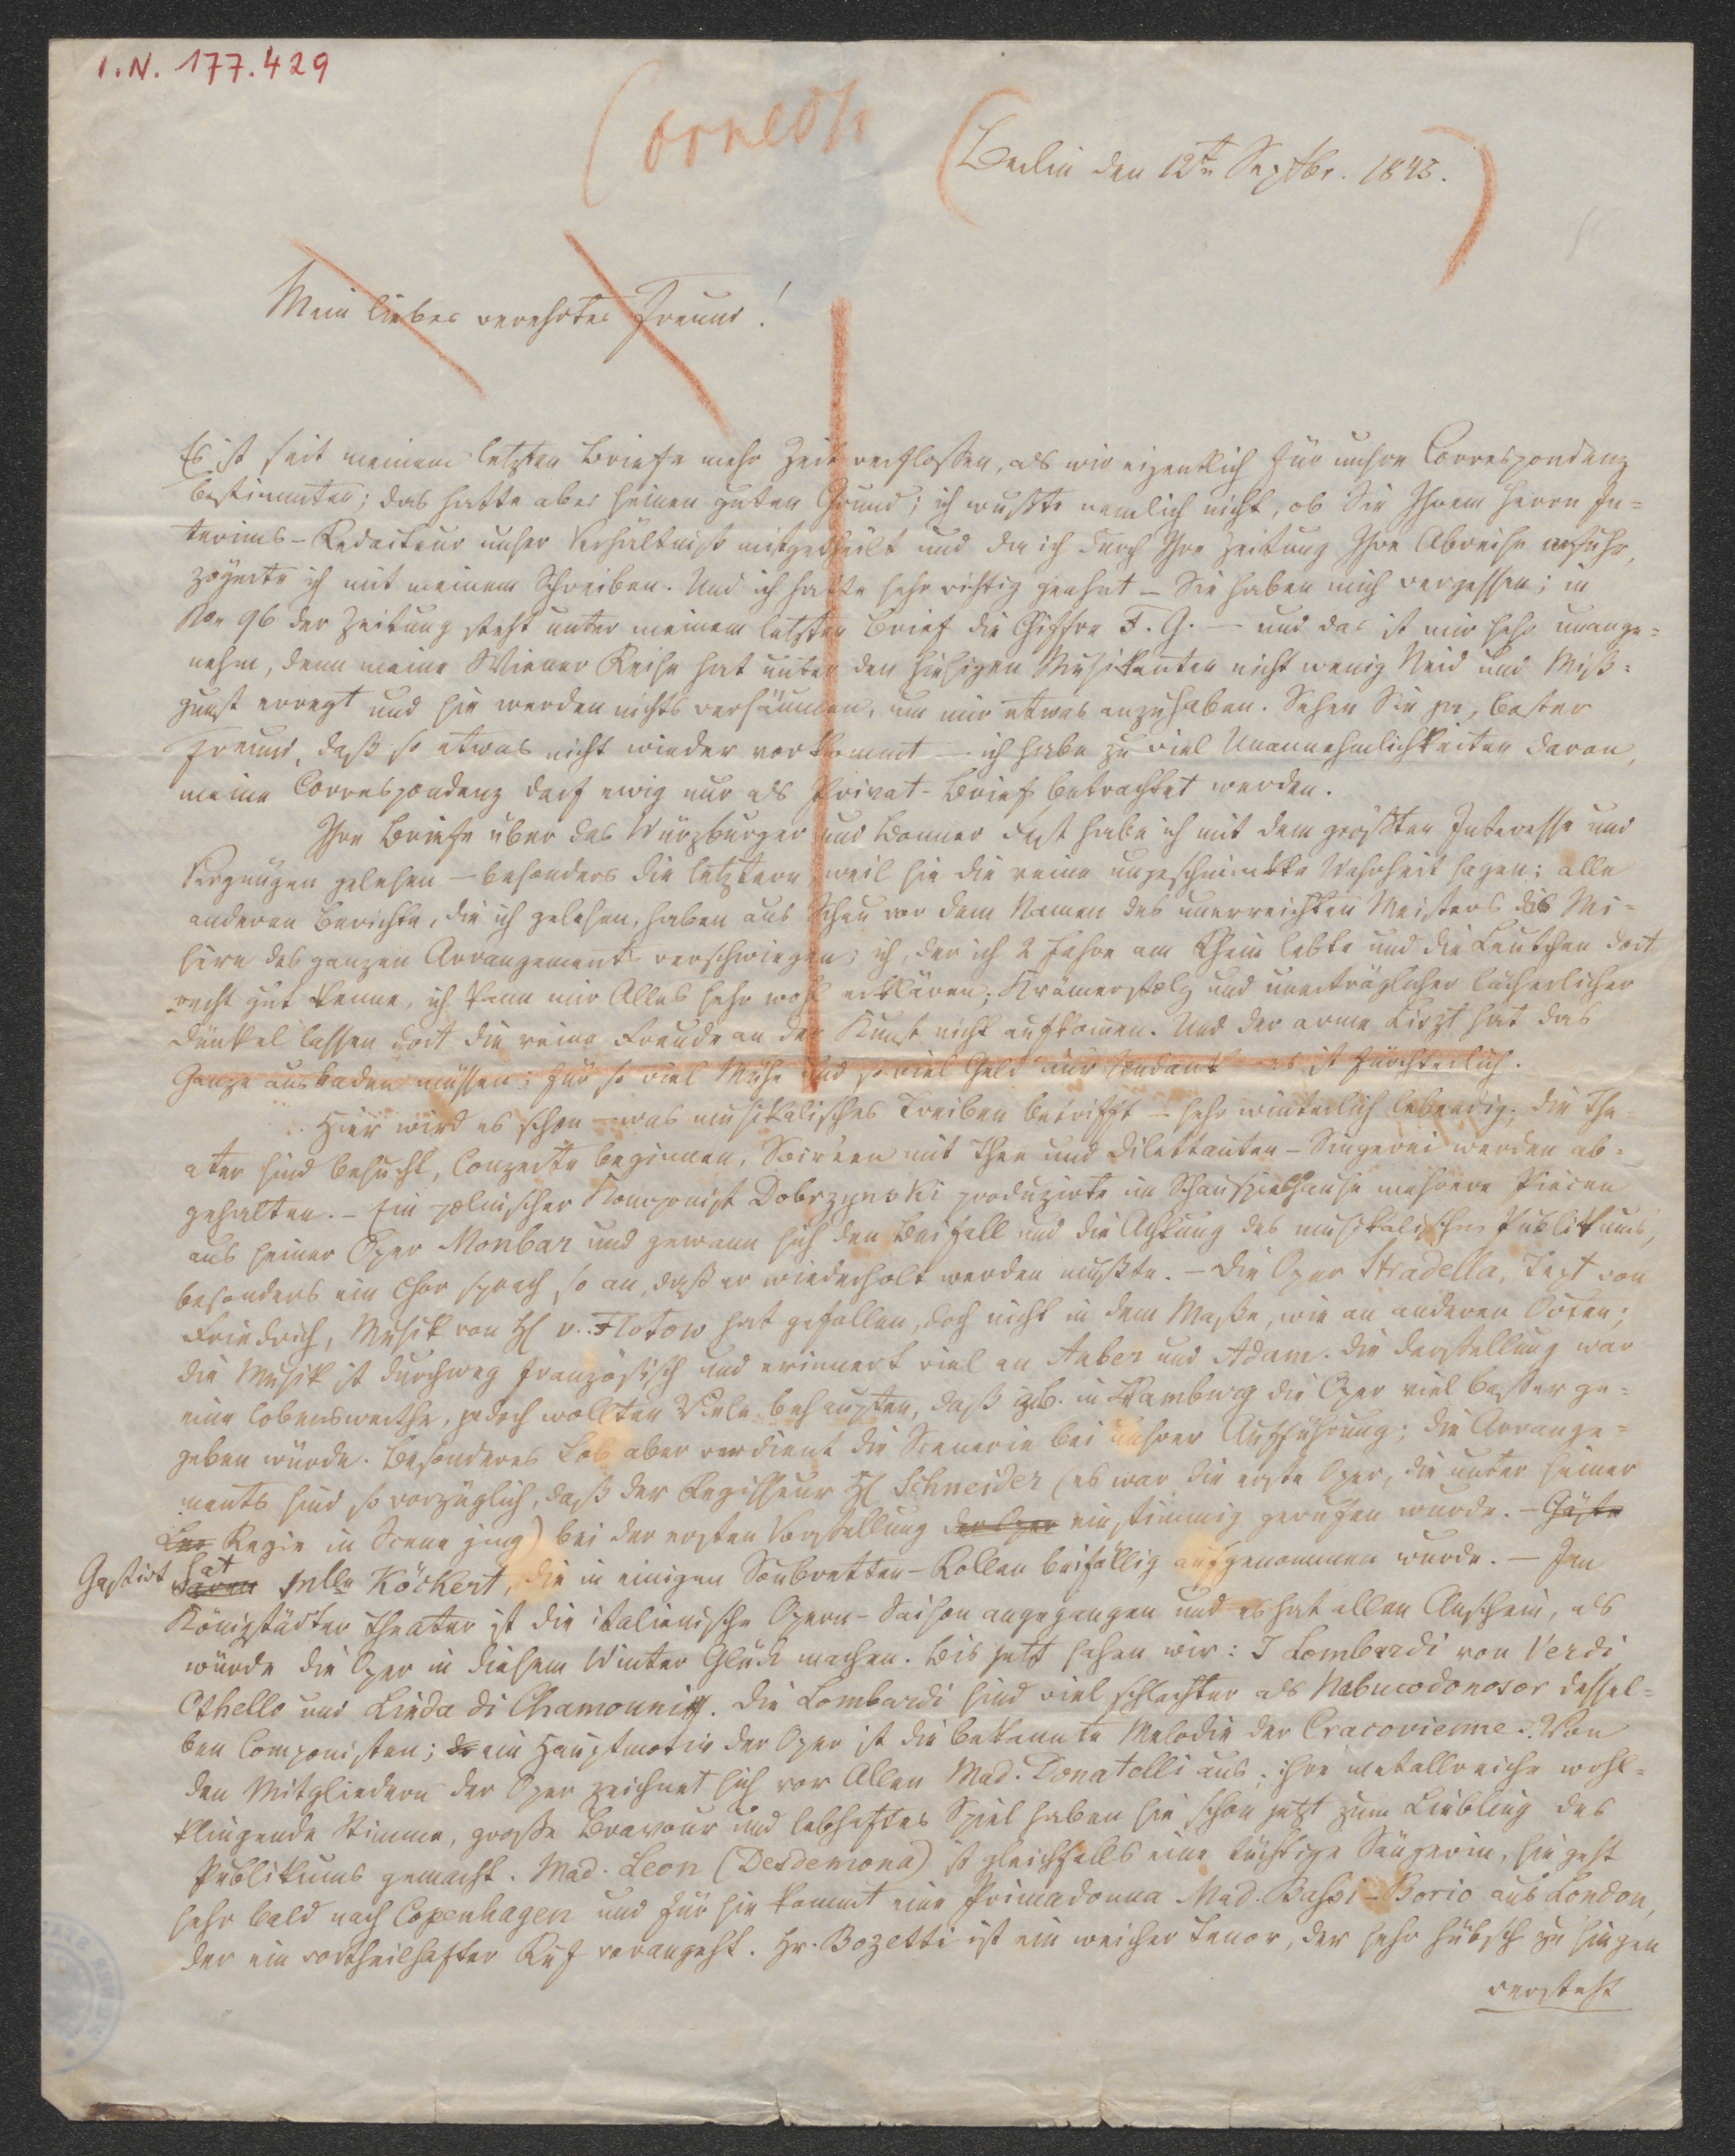 I.N. 177.429
Berlin den 12tn Septbr. 1845.
Mein lieber verehrter Freund!
Es ist seit meinem letzten Briefe mehr Zeit verflossen, als wir eigentlich für unsre Correspondenz
bestimmten; das hatte aber seinen guten Grund; ich wußte nemlich nicht, ob Sie Ihrem Herrn In=
terims-Redacteur unser Verhältniß mitgetheilt und da ich durch Ihre Zeitung Ihre Abreise erfuhr,
zögerte ich mit meinem Schreiben. Und ich hatte sehr richtig geahnt – Sie haben mich vergessen; in
No 96 der Zeitung steht unter meinem letzten Brief die Chiffre F. G. – und das ist mir sehr unange=
nehm, denn meine Wiener Reise hat unter den hiesigen Musikanten nicht wenig Neid und Miß=
gunst erregt und sie werden nichts versäumen, um mir etwas anzuhaben. Sehen Sie ja, bester
Freund, daß so etwas nicht wieder vorkommt – ich habe zu viel Unannehmlichkeiten davon,
meine Correspondenz darf ewig nur als Privat-Brief betrachtet werden.
Ihre Briefe über das Würzburger und Bonner Fest habe ich mit dem größten Interesse und
Vergnügen gelesen – besonders die letztern, weil sie die reine ungeschminkte Wahrheit sagen; alle
anderen Berichte, die ich gelesen, haben aus Scheu vor dem Namen des unerreichten Meisters das Mi=
sere des ganzen Arrangements verschwiegen; ich, der ich 2 Jahre am Rhein lebte und die Leutchen dort
recht gut kenne, ich kann mir Alles sehr wohl erklären; Krämerstolz und unerträglicher lächerlicher
Dünkel lassen dort die reine Freude an der Kunst nicht aufkommen. Und der arme Liszt hat das
Ganze ausbaden müssen; für so viel Mühe und so viel Geld nur Undank – es ist fürchterlich.
Hier wird es schon – was musikalisches Treiben betrifft – sehr winterlich lebendig; die The=
ater sind besucht, Conzerte beginnen, Soiréen mit Thee und Dilettanten-Singerei werden ab=
gehalten. – Ein polnischer Komponist Dobrzynski produzirte im Schauspielhause mehrere Piecen
aus seiner Oper Monbar und gewann sich den Beifall und die Achtung des musikalischen Publikums,
besonders ein Chor sprach so an, daß er wiederholt werden mußte. – Die Oper Stradella, Text von
Friedrich, Musik von H v. Flotow hat gefallen, doch nicht in dem Maße, wie an anderen Orten;
die Musik ist durchweg französisch und erinnert viel an Auber und Adam. Die Darstellung war
eine lobenswerthe, jedoch wollten Viele behaupten, daß zb. in Hamburg die Oper viel besser ge=
geben würde. Besonderes Lob aber verdient die Scenerie bei unsrer Aufführung; die Arrange=
ments sind so vorzüglich, daß der Regisseur H Schneider (es war die erste Oper, die unter seiner
Regie in Scene ging) bei der ersten Vorstellung der Oper einstimmig gerufen wurde. – Gäste
Gastirt hat waren Mlle Köckert, die in einigen Soubretten-Rollen beifällig aufgenommen wurde. – Im
Königstädter Theater ist die italienische Opern-Saison angegangen und es hat allen Anschein, als
würde die Oper in diesem Winter Glück machen. Bis jetzt sahen wir: I Lombardi von Verdi,
Othello und Linda di Chamounix. Die Lombardi sind viel schlechter als Nabucodonosor dessel=
ben Componisten; ein Hauptmotiv der Oper ist die bekannte Melodie der Cracovienne. Von
den Mitgliedern der Oper zeichnet sich vor Allen Mad. Donatelli aus; ihre metallreiche wohl=
klingende Stimme, große Bravour und lebhaftes Spiel haben sie schon jetzt zum Liebling des
Publikums gemacht. Mad. Leon (Desdemona) ist gleichfalls eine tüchtige Sängerin, sie geht
sehr bald nach Copenhagen und für sie kommt eine Primadonna Mad. Bassi-Borio aus London,
der ein vortheilhafter Ruf vorangeht. Hr. Bozetti ist ein weicher Tenor, der sehr hübsch zu singen
versteht